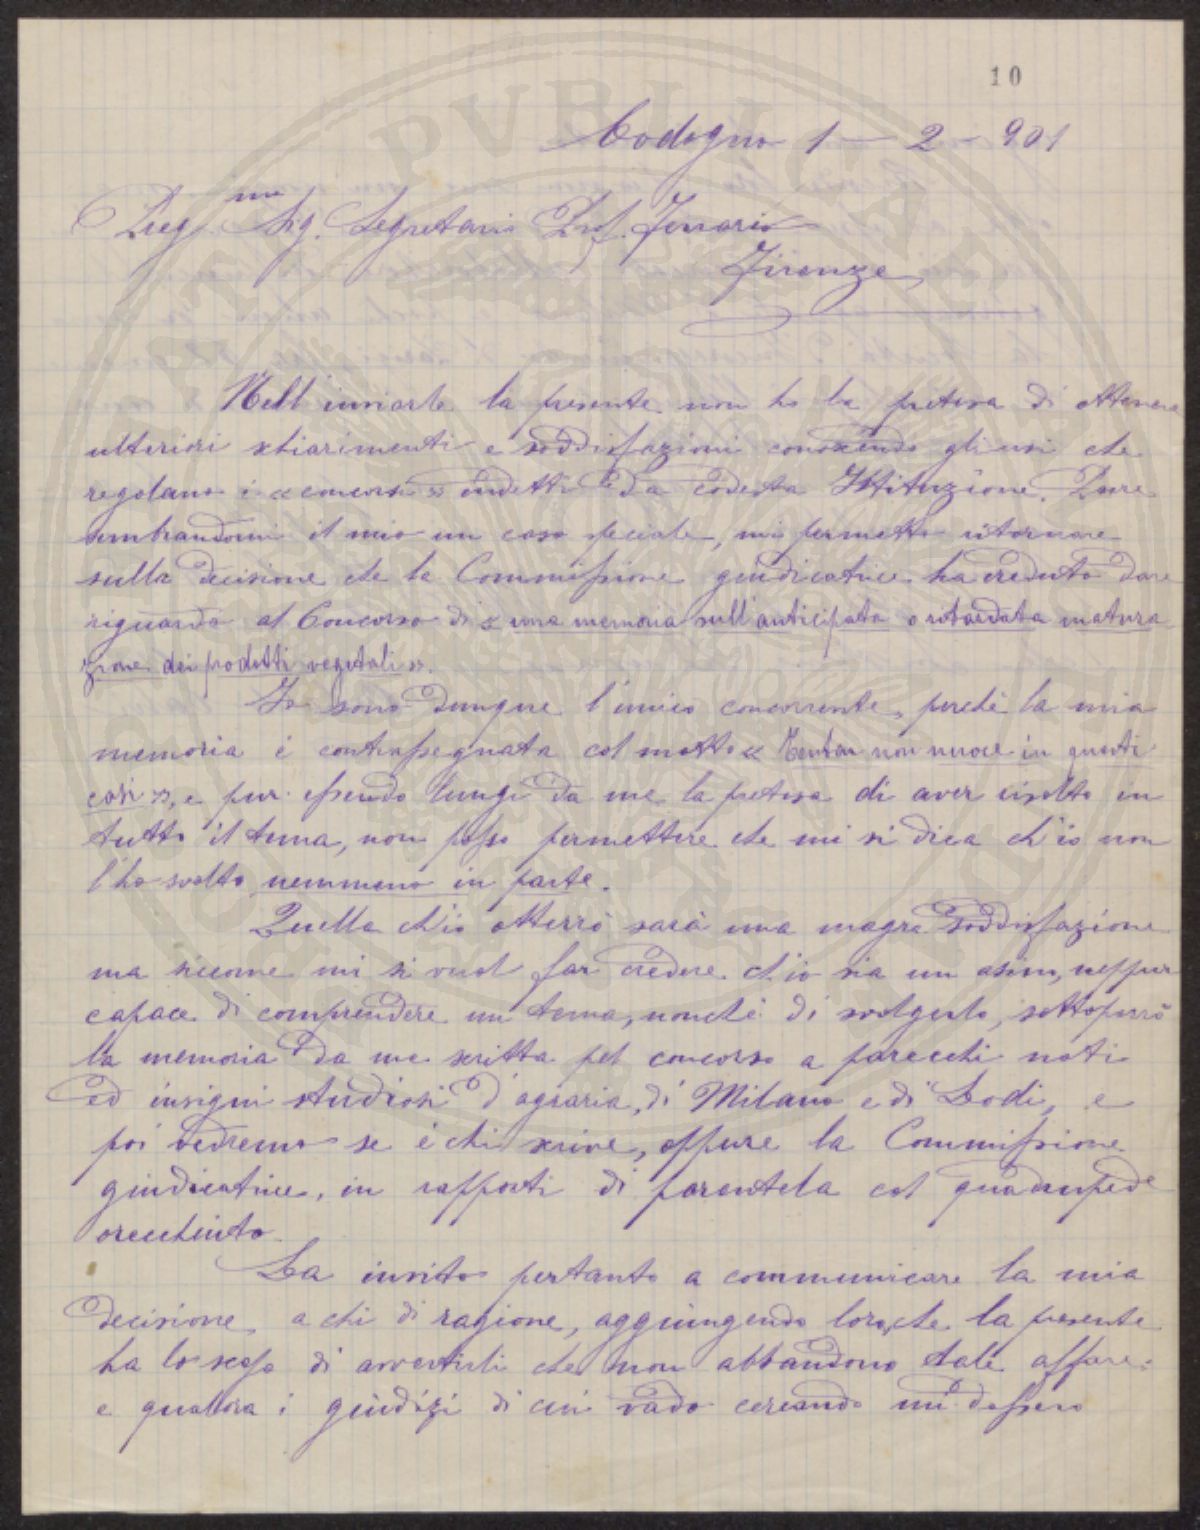 10
Codogno 1-2-901
Preg.mo Sig. Segretario Prof. Ferrario
Firenze
Nell'inviarle la presente non ho la pretesa di ottenere
ulteriori schiarimenti e soddisfazioni conoscendo gli usi che
regolano i «concorsi» indetti da codesta Istituzione. Pure
sembrandomi il mio un caso speciale, mi permetto ritornare
sulla decisione che la Commissione giudicatrice ha creduto dare
riguardo al Concorso di «una memoria sull'anticipata o ritardata matura
zione dei prodotti vegetali».
Io sono dunque l'unico concorrente, perchè la mia
memoria è contrassegnata col motto «Tentar non nuoce in questi
casi», e pur essendo lungi da me la pretesa di aver risolto in
tutto il tema, non posso permettere che mi si dica ch'io non
l'ho svolto nemmeno in parte.
Quella ch'io otterrò sarà una magra soddisfazione
ma siccome mi si vuol far credere ch'io sia un asino, neppur
capace di comprendere un tema, nonchè di svolgerlo, sottoporrò
la memoria da me scritta pel concorso a parecchi noti
ed insigni studiosi d'agraria, di Milano e di Lodi, e
poi vedremo se è chi scrive, oppure la Commissione
giudicatrice, in rapporti di parentela col quadrupede
orecchiuto.
La invito pertanto a communicare la mia
decisione a chi di ragione, aggiungendo loro, che la presente
ha lo scopo di avvertirli che non abbandono tale affare:
e qualora i giudizi di cui vado cercando mi dessero